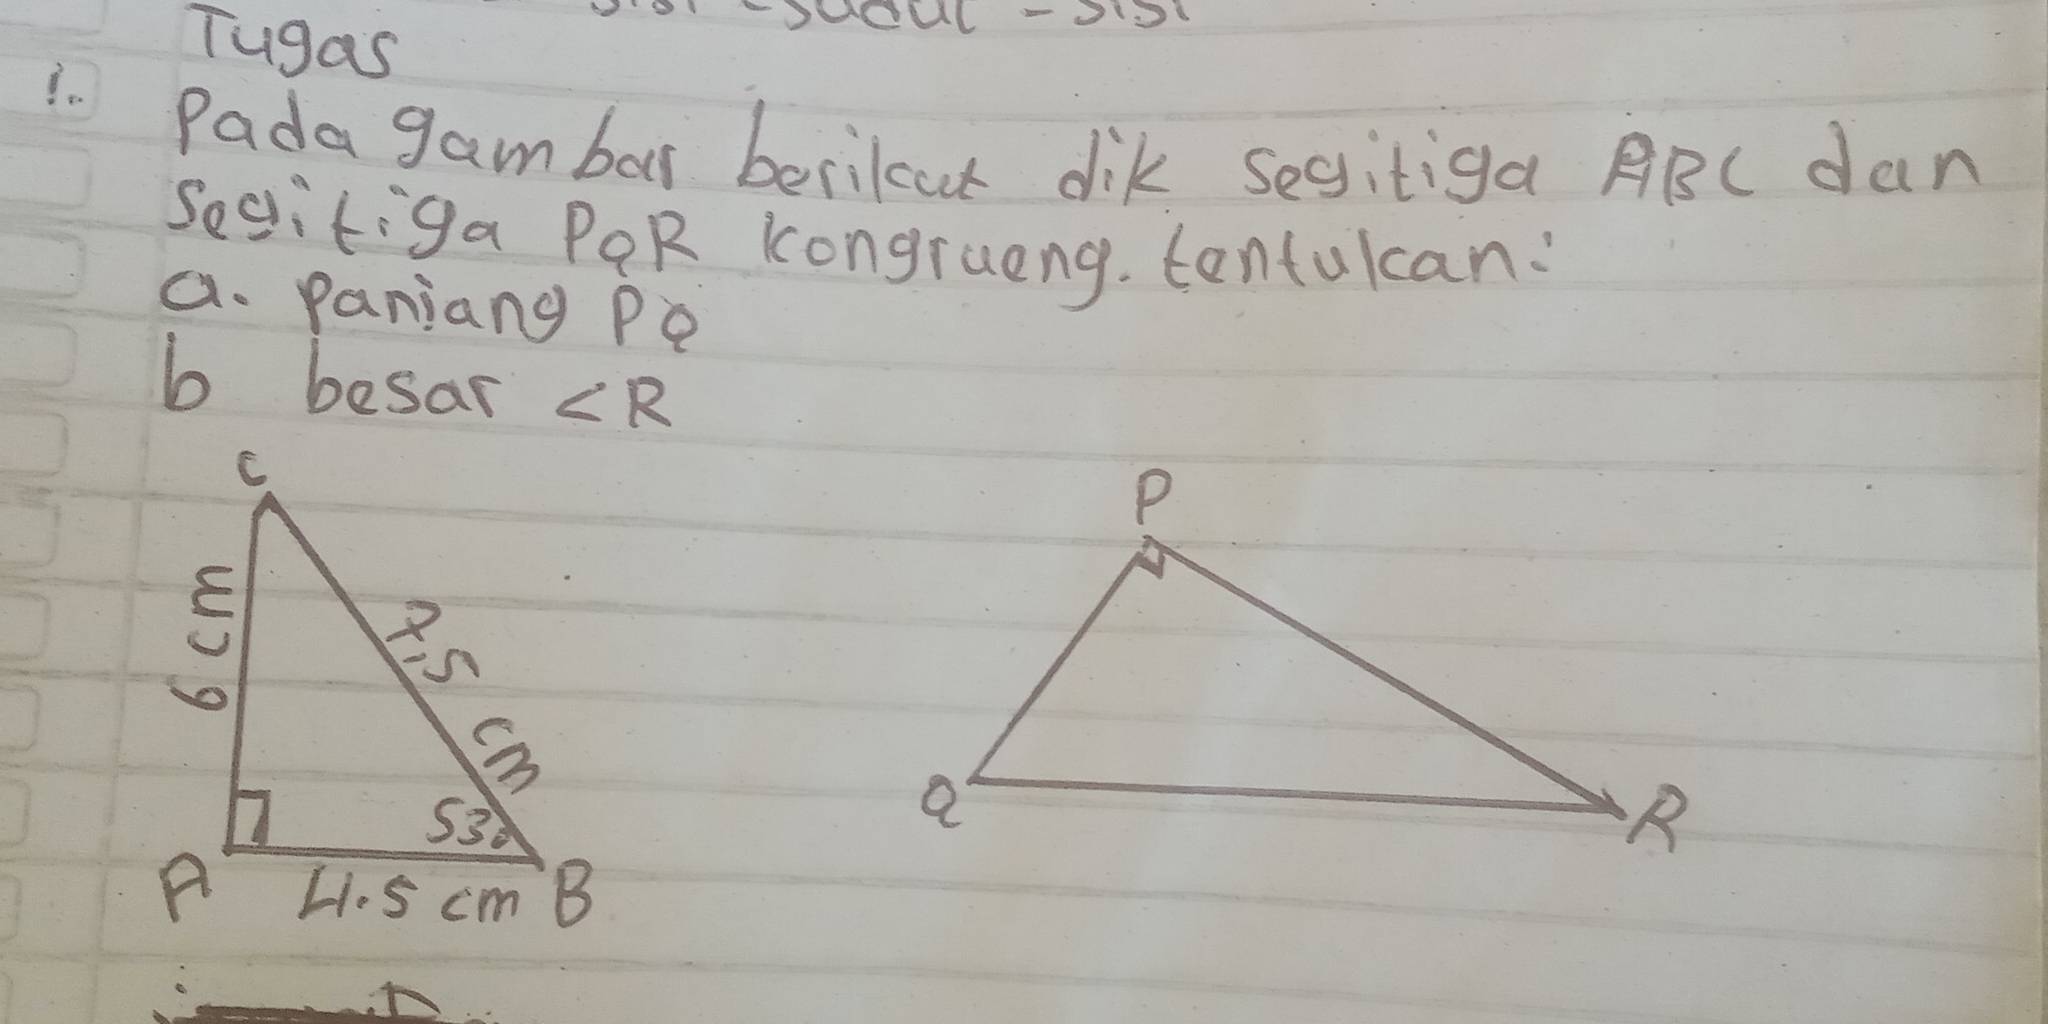 - sisi
Tugas
1.
Pada gambar berikut dik segitiga ABC dan
segitiga PQR kongrueng. tentukan:
a. Panjang PQ
b besar <R
C
6 cm
7,5 cm
53°
A 4.5 cm B
P
Q
R